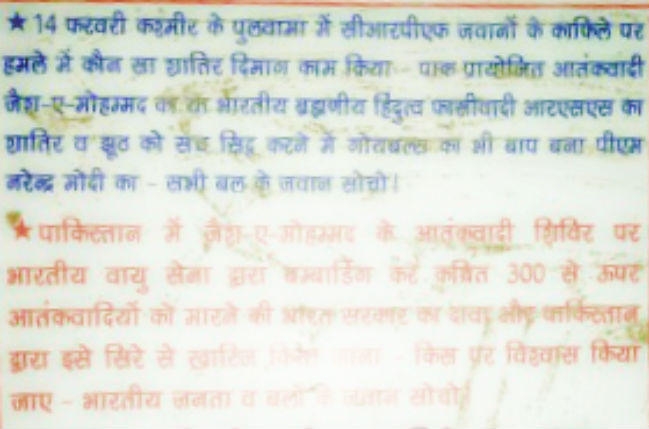 ★ 14 फरवरी कश्मीर के पुलवामा में सीआरपीएफ जवानों के काफिले पर
हमले में कौन सा शातिर दिमाग काम किया - पाक प्रायोजित आतंकवादी
जैश-ए-मोहम्मद का या भारतीय ब्रह्मणीय हिंदुत्व फासीवादी आरएसएस का
शातिर व झूठ को सच सिद्व करने में गोयबल्स का भी बाप बना पीएम
नरेन्द्र मोदी का - सभी बल के जवान सोचो!
★ पाकिस्तान में जैश-ए-मोहम्मद के आतंकवादी शिविर पर
भारतीय वायु सेना द्वारा बम्बार्डिंग कर कथित 300 से ऊपर
आतंकवादियों को मारने की भारत सरकार का दावा और पाकिस्तान
द्वारा इसे सिरे से खारिज किये जाना - किस पर विश्वास किया
जाए - भारतीय जनता व बलों के जवान सोचो!